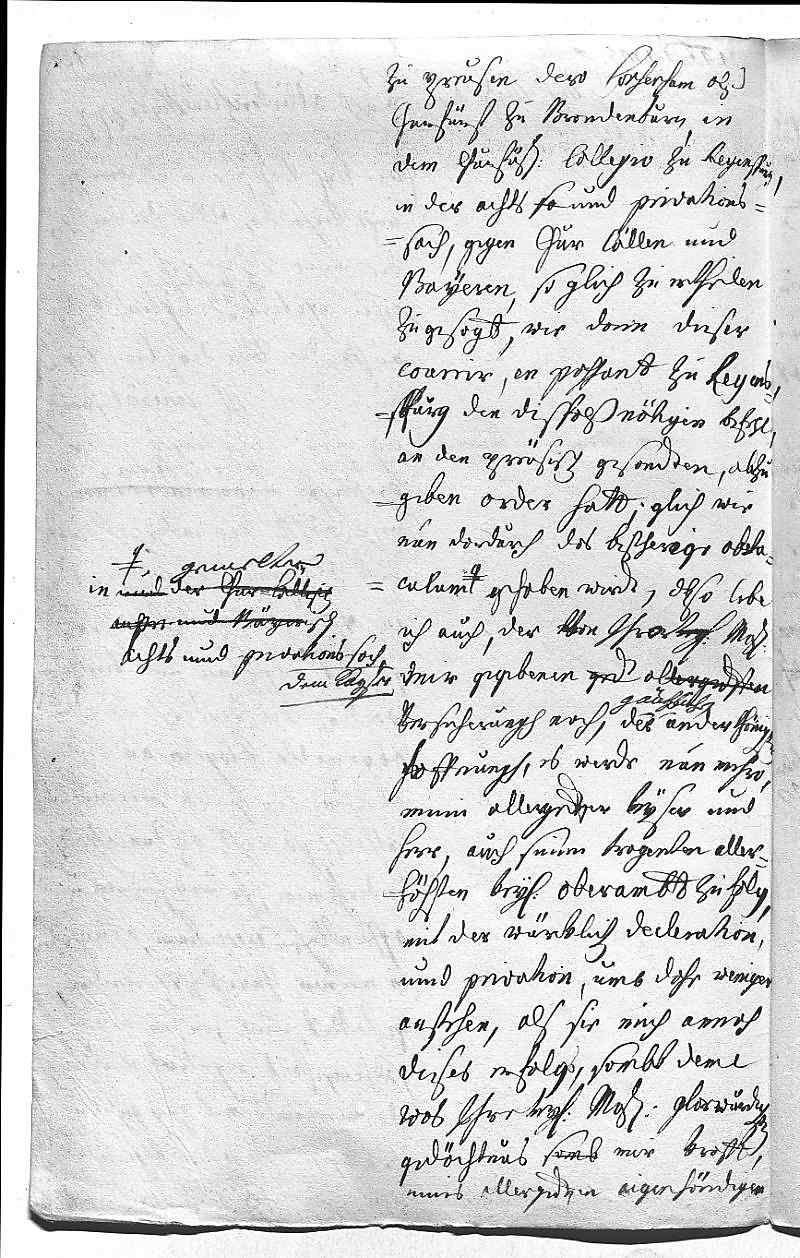 zu Preüsen dero als
Churfürst zu Brandenburg in
dem Churfürst: Collegio zu Regenspurg,
in der achts so und privations=
=sach, gegen Chur Cöllen und
Bayeren, so glich zu ertheilen
zu gesagt, wie dann dieser
courrir, en passant zu Regens=
=spurg den disfals nöthigen befehl,
an den preüsisch gesandten, abzu
=geben order hatt, glich wie
nun dardurch das bisherige obsta=
=calum gehoben wird, also lebe
ich auch, der von Ihro Kays: May:
mir gegebenen allergnädigsten
Versicherung nach, der
Hoffnung, es werde nun mehro,
mein allergndster Kayser und
Herr, auch seinem tragenden aller=
=höchsten kays: oberambt zu folg,
mit der würcklich declaration,
und privation, umb dahr weniger
anstehen, als sie mich annoch
dieses erfolgs, sambt deme
was Ihre kays: May: glorwürdigst
gedächtnus mir
mein allergndsten eigenhändigen
gemelter
in und der Chur Cöllnische
und Bayerisch
achts und privations sach
dem Kayser